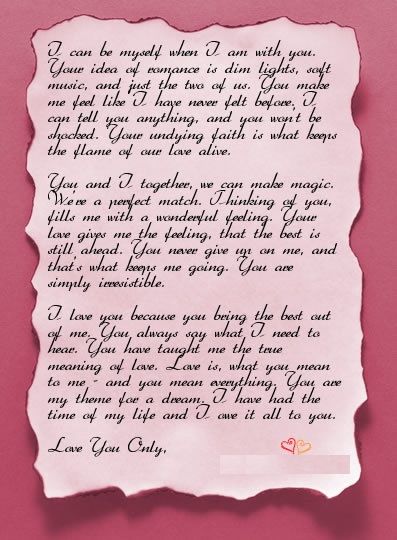 I can be myself when I am with you.
Your idea of romance is dim lights, soft
music, and just the two of us. You make
me feel like I have never felt before, I
can tell you anything, and you won't be
shocked. Your undying faith is what keeps
the flame of our love alive.
You and I together, we can make magic.
We're a perfect match. Thinking of you,
fills me with a wonderful feeling. Your
love gives me the feeling, that the best is
still ahead. You never give up on me, and
that's what keeps me going. You are
simply irresistible.
I love you because you bring the best out
of me. You always say what I need to
hear. You have taught me the true
meaning of love. Love is, what you mean
to me - and you mean everything. You are
my theme for a dream. I have had the
time of my life and I owe it all to you.
Love You Only,